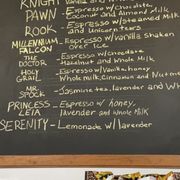 KNIGHT Vanilla and Whole Milk
PAWN - Espresso w/Chocolate,
Coconut and Almond Milk
ROOK - Espresso w/Steamed Milk
and Unicorn tears
MILLENNIUM FALCON - Espresso w/Vanilla Shaken
over Ice
THE DOCTOR - Espresso w/Chocolate
Hazelnut and Whole Milk
HOLY GRAIL - Espresso w/Vanilla, honey
Whole milk, Cinnamon and Nutmeg
MR. SPOCK - Jasmine tea, lavender and Wh
PRINCESS LEIA - Espresso w/ honey,
lavender and whole Milk
SERENITY - Lemonade w/lavender